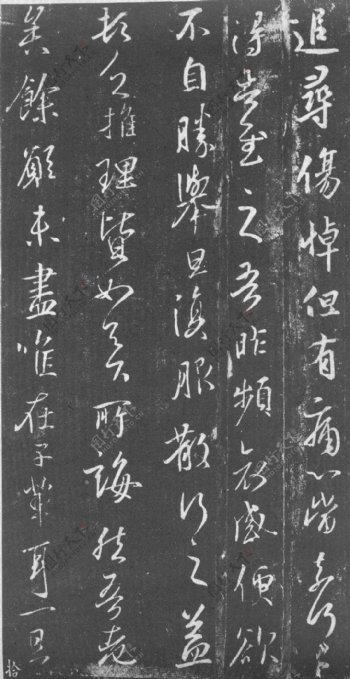 追尋傷悼但有痛心當奈何〻
得告慰之吾昨頻哀感便欲
不自勝舉旦復服散行之益
頓乏推理皆如足下所誨然吾老
矣餘願未盡唯在子輩耳一旦
拾